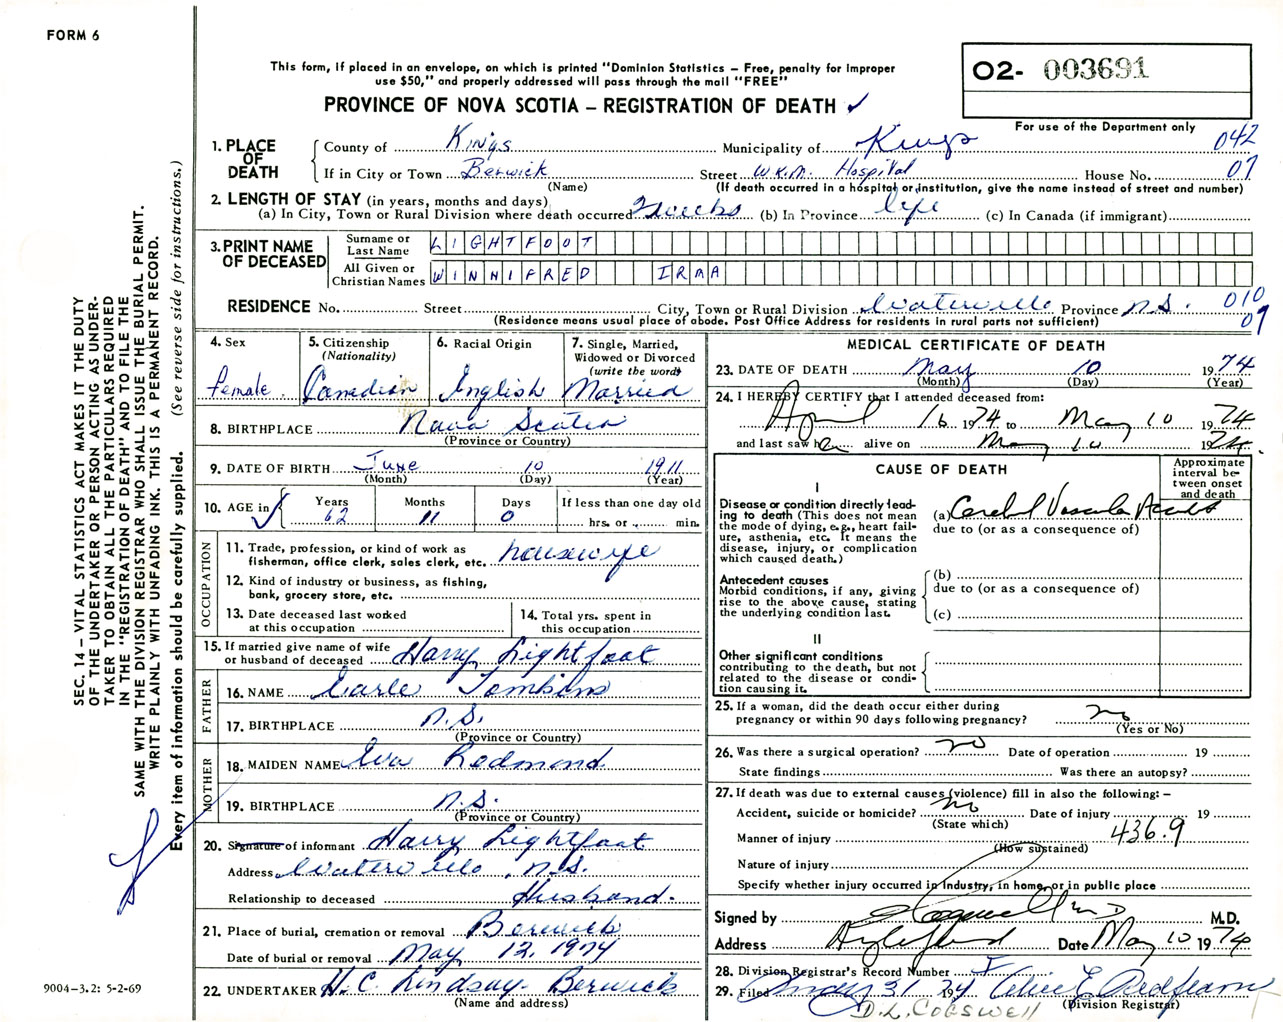 FORM 6
This form, if placed in an envelope, on which is printed "Dominion Statistics – Free, penalty for improper
use $50," and properly addressed will pass through the mail "FREE"
PROVINCE OF NOVA SCOTIA – REGISTRATION OF DEATH ✓
02- 003691
For use of the Department only
SEC. 14 – VITAL STATISTICS ACT MAKES IT THE DUTY
OF THE UNDERTAKER OR PERSON ACTING AS UNDER-
TAKER TO OBTAIN ALL THE PARTICULARS REQUIRED
IN THE "REGISTRATION OF DEATH" AND TO FILE THE
SAME WITH THE DIVISION REGISTRAR WHO SHALL ISSUE THE BURIAL PERMIT.
WRITE PLAINLY WITH UNFADING INK. THIS IS A PERMANENT RECORD.
Every item of information should be carefully supplied. (See reverse side for instructions.)
1. PLACE OF DEATH
County of Kings Municipality of Kings 042
If in City or Town Berwick Street W.K.M. Hospital House No. 07
(Name) (If death occurred in a hospital or institution, give the name instead of street and number)
2. LENGTH OF STAY (in years, months and days)
(a) In City, Town or Rural Division where death occurred 3 weeks (b) In Province life (c) In Canada (if immigrant)
3. PRINT NAME OF DECEASED
Surname or Last Name LIGHTFOOT
All Given or Christian Names WINNIFRED IRMA
RESIDENCE No. Street City, Town or Rural Division Waterville Province N.S. 010
(Residence means usual place of abode. Post Office Address for residents in rural parts not sufficient) 07
4. Sex female.
5. Citizenship (Nationality) Canadian
6. Racial Origin English
7. Single, Married, Widowed or Divorced (write the word) Married
8. BIRTHPLACE Nova Scotia
(Province or Country)
9. DATE OF BIRTH June 10 1911
(Month) (Day) (Year)
10. AGE in ✓ Years 62 Months 11 Days 0 If less than one day old hrs. or min.
OCCUPATION
11. Trade, profession, or kind of work as fisherman, office clerk, sales clerk, etc. housewife
12. Kind of industry or business, as fishing, bank, grocery store, etc.
13. Date deceased last worked at this occupation
14. Total yrs. spent in this occupation
15. If married give name of wife or husband of deceased Harry Lightfoot
FATHER
16. NAME Earle Tomkins
17. BIRTHPLACE N.S.
(Province or Country)
MOTHER
18. MAIDEN NAME Eva Redmond
19. BIRTHPLACE N.S.
(Province or Country)
20. Signature of informant Harry Lightfoot
Address Waterville, N.S.
Relationship to deceased Husband.
21. Place of burial, cremation or removal Berwick
Date of burial or removal May 12, 1974
22. UNDERTAKER H.C. Lindsay Berwick
(Name and address)
9004-3.2: 5-2-69
MEDICAL CERTIFICATE OF DEATH
23. DATE OF DEATH May 10 1974
(Month) (Day) (Year)
24. I HEREBY CERTIFY that I attended deceased from:
April 16 1974 to May 10 1974
and last saw her alive on May 10 1974.
CAUSE OF DEATH
Approximate interval between onset and death
I
Disease or condition directly leading to death (This does not mean the mode of dying, e.g., heart failure, asthenia, etc. It means the disease, injury, or complication which caused death.)
(a) Cerebral Vascular Accident
due to (or as a consequence of)
Antecedent causes
Morbid conditions, if any, giving rise to the above cause, stating the underlying condition last.
(b)
due to (or as a consequence of)
(c)
II
Other significant conditions
contributing to the death, but not related to the disease or condition causing it.
25. If a woman, did the death occur either during
pregnancy or within 90 days following pregnancy? no
(Yes or No)
26. Was there a surgical operation? no Date of operation 19
State findings Was there an autopsy?
27. If death was due to external causes (violence) fill in also the following: –
Accident, suicide or homicide? no Date of injury 19
(State which)
Manner of injury 436.9
(How sustained)
Nature of injury
Specify whether injury occurred in Industry, in home, or in public place
Signed by M.D.
Address Date May 10 1974
28. Division Registrar's Record Number
29. Filed May 31 1974 Alice E Redfearn
(Division Registrar)
D.L. COGSWELL